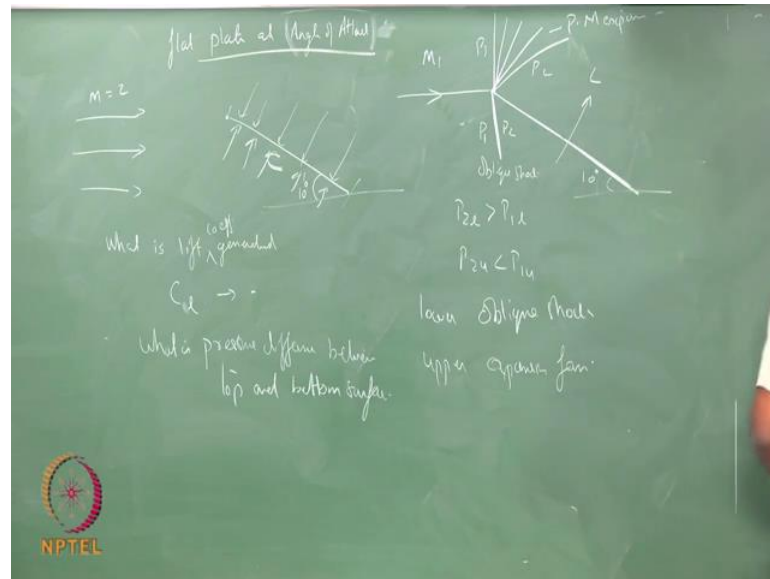 flat plate at Angle of Attack
M = 2
10°
What is lift coeff generated
C
What is pressure difference between
top and bottom surface.
P. M expansion
P1
P2
M1
L
P1 P2
Oblique shock
10°
P2l > P1l
P2u < P1u
lower oblique shock
upper expansion fan.
NPTEL